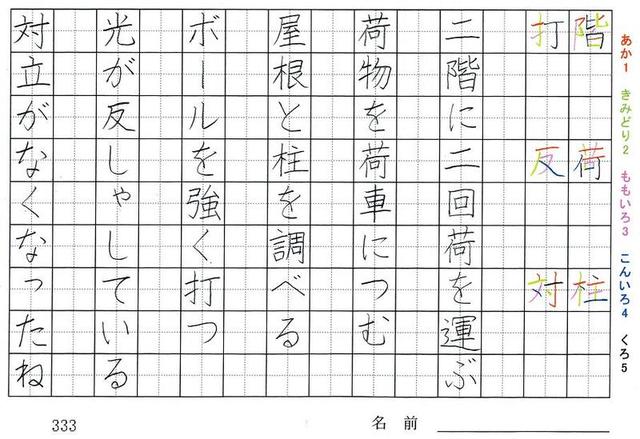 あか1 きみどり2 ももいろ3 こんいろ4 くろ5
階 荷 柱
打 反 対
二階に二回荷を運ぶ
荷物を荷車につむ
屋根と柱を調べる
ボールを強く打つ
光が反しゃしている
対立がなくなったね
333
名前